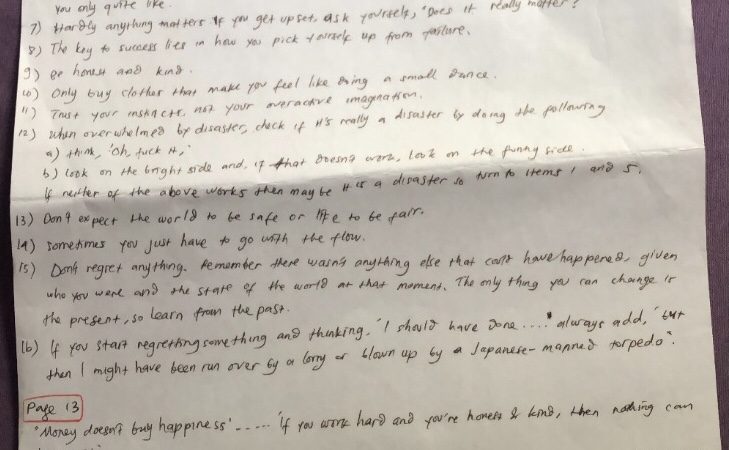 you only quite like.
7) Hardly anything matters if you get upset, ask yourself, "Does it really matter?
8) The key to success lies in how you pick yourself up from failure.
9) Be honest and kind.
10) Only buy clothes that make you feel like doing a small dance.
11) Trust your instincts, not your overactive imagination.
12) When overwhelmed by disaster, check if it's really a disaster by doing the following
a) think, 'Oh, fuck it,'
b) look on the bright side and, if that doesn't work, look on the funny side.
If neither of the above works then maybe it is a disaster so turn to items 1 and 5.
13) Don't expect the world to be safe or life to be fair.
14) Sometimes you just have to go with the flow.
15) Don't regret anything. Remember there wasn't anything else that could have happened, given
who you were and the state of the world at that moment. The only thing you can change is
the present, so learn from the past.
16) If you start regretting something and thinking, 'I should have done....' always add, 'but
then I might have been run over by a lorry or blown up by a Japanese-manned torpedo'.
Page 13
'Money doesn't buy happiness' ..... 'if you work hard and you're honest & kind, then nothing can